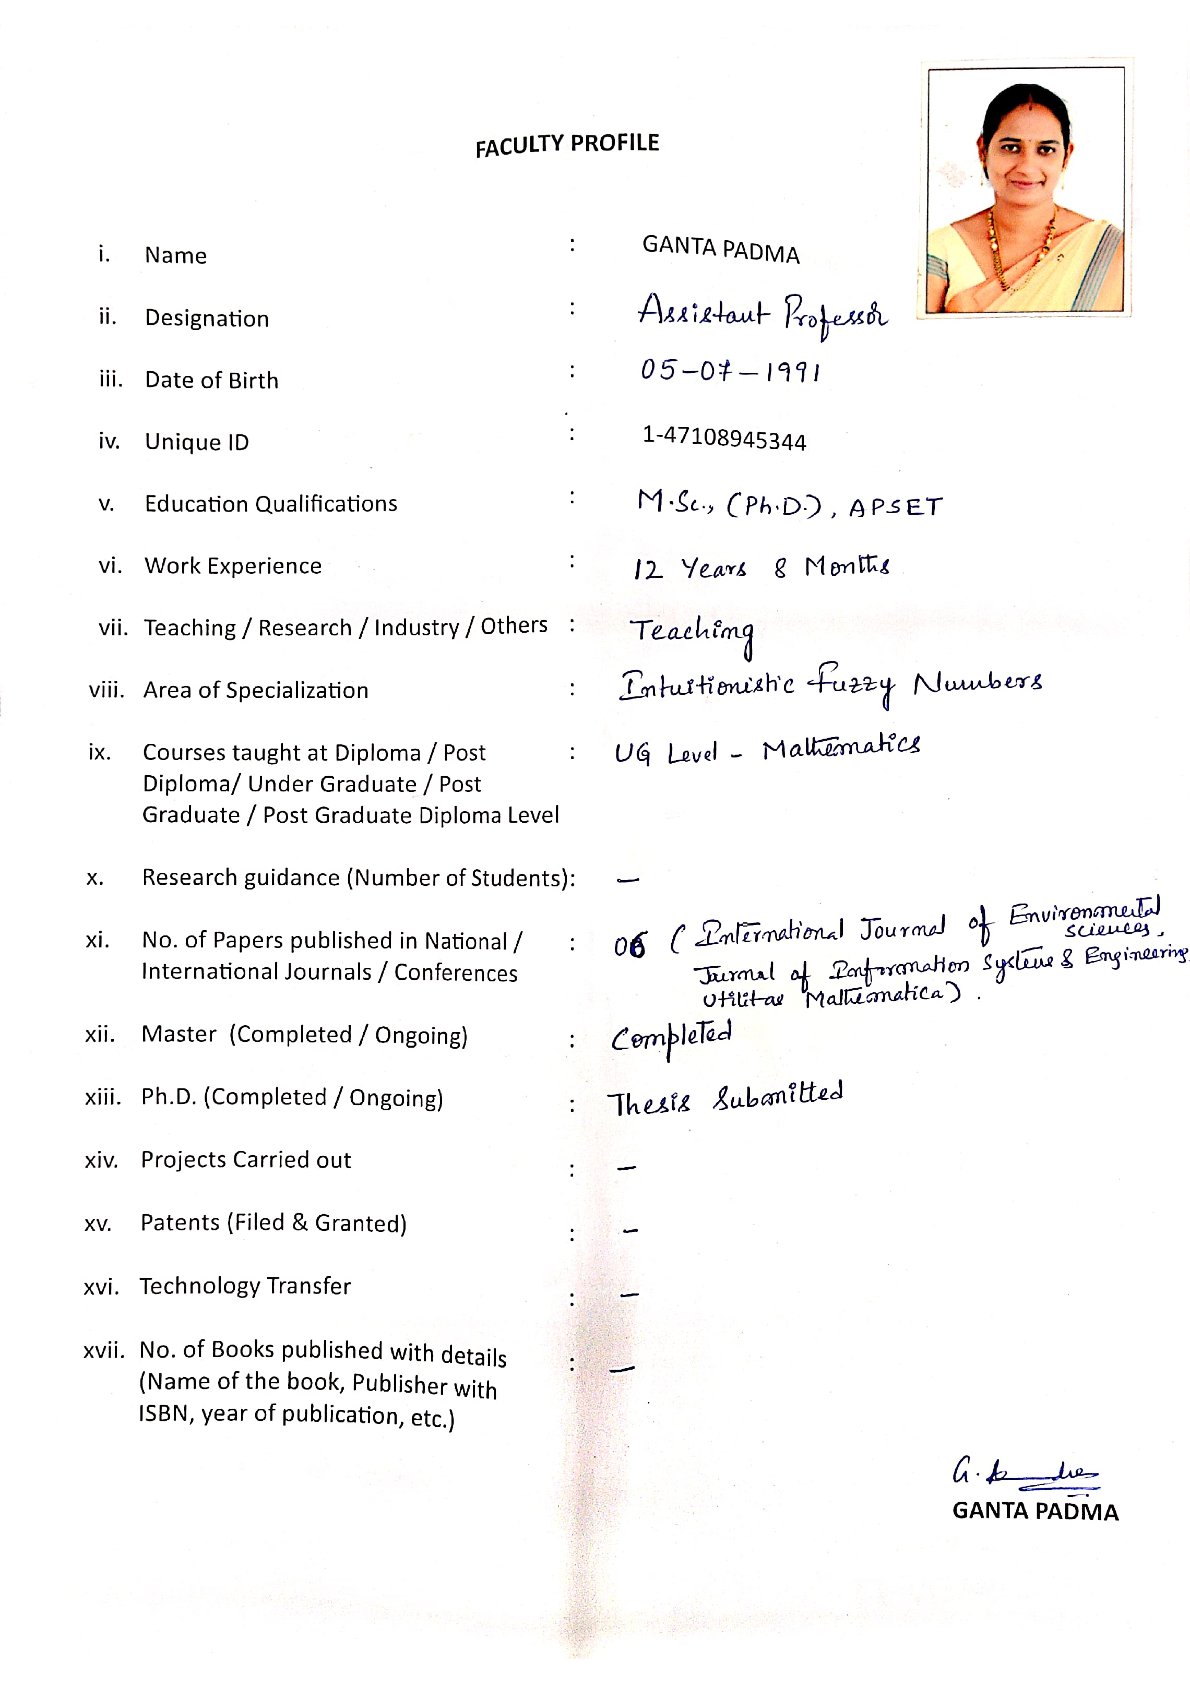 FACULTY PROFILE
i. Name : GANTA PADMA
ii. Designation : Assistant Professor
iii. Date of Birth : 05-07-1991
iv. Unique ID : 1-47108945344
v. Education Qualifications : M.Sc., (Ph.D.), APSET
vi. Work Experience : 12 Years 8 Months
vii. Teaching / Research / Industry / Others : Teaching
viii. Area of Specialization : Intuitionistic Fuzzy Numbers
ix. Courses taught at Diploma / Post : UG Level - Mathematics
Diploma/ Under Graduate / Post
Graduate / Post Graduate Diploma Level
x. Research guidance (Number of Students): -
xi. No. of Papers published in National / : 06 (International Journal of Environmental
sciences,
International Journals / Conferences Journal of Information Systems & Engineering
Utilitas Mathematica).
xii. Master (Completed / Ongoing) : Completed
xiii. Ph.D. (Completed / Ongoing) : Thesis Submitted
xiv. Projects Carried out : -
xv. Patents (Filed & Granted) : -
xvi. Technology Transfer : -
xvii. No. of Books published with details : -
(Name of the book, Publisher with
ISBN, year of publication, etc.)
GANTA PADMA